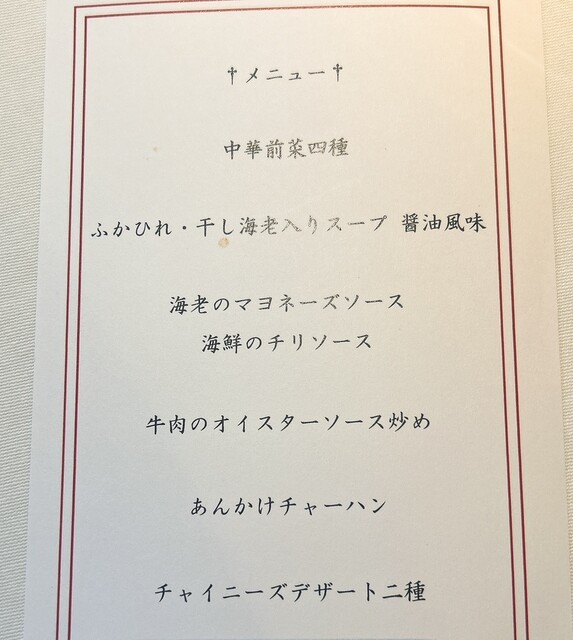 †メニュー†
中華前菜四種
ふかひれ・干し海老入りスープ 醤油風味
海老のマヨネーズソース
海鮮のチリソース
牛肉のオイスターソース炒め
あんかけチャーハン
チャイニーズデザート二種